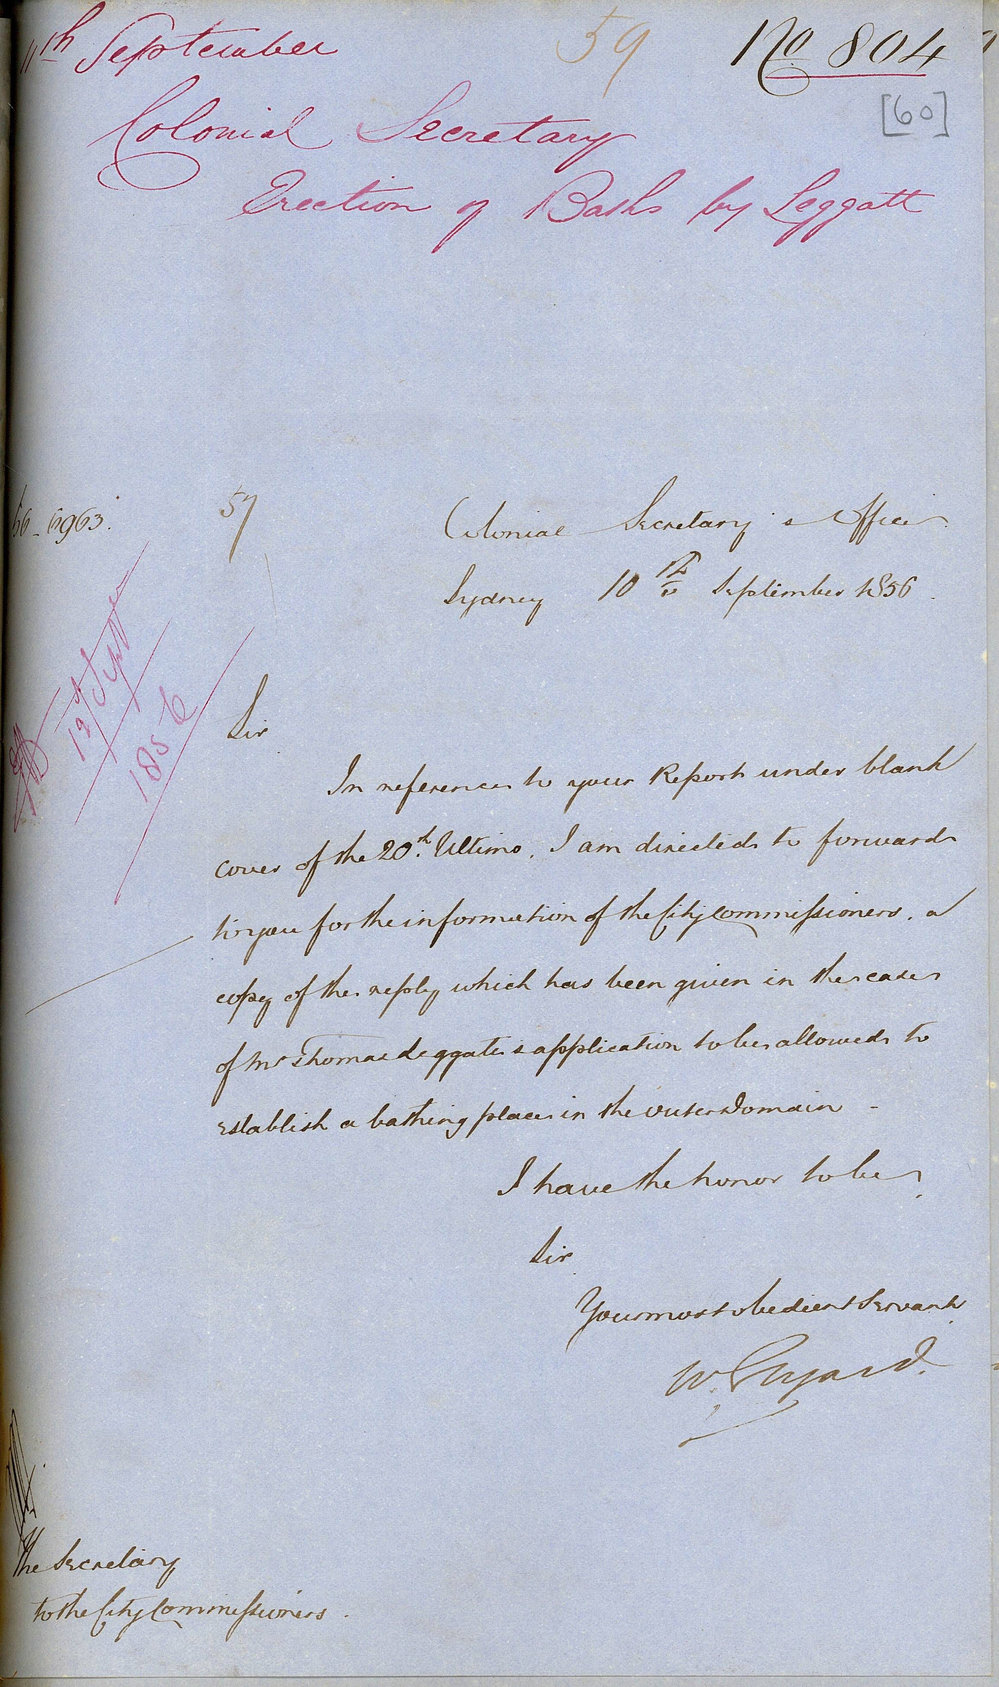 11th September
59
No 804
[60]
Colonial Secretary
Erection of Baths by Leggatt
56-6963.
57
Colonial Secretary's Office
Sydney 10th September 1856.
12 Sept
1856
Sir
In reference to your Report under blank
cover of the 20th Ultimo, I am directed to forward
to you for the information of the City Commissioners, a
copy of the reply which has been given in the case
of Mr Thomas Leggatt's application to be allowed to
establish a bathing place in the outer Domain -
I have the honor to be,
Sir
Your most obedient Servant
W. Elyard.
The Secretary
to the City Commissioners.